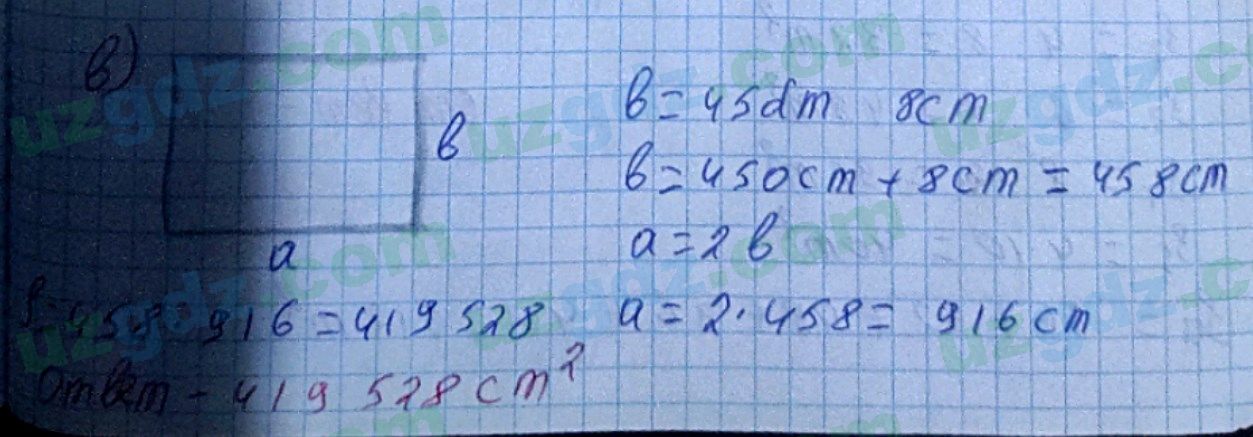 в)
в = 45dm 8cm
в
в = 450cm + 8cm = 458cm
a
a = 2 в
a = 2 · 458 = 916 cm
458 · 916 = 419 528
Ответ - 419 528 cm²
uzgdz.com